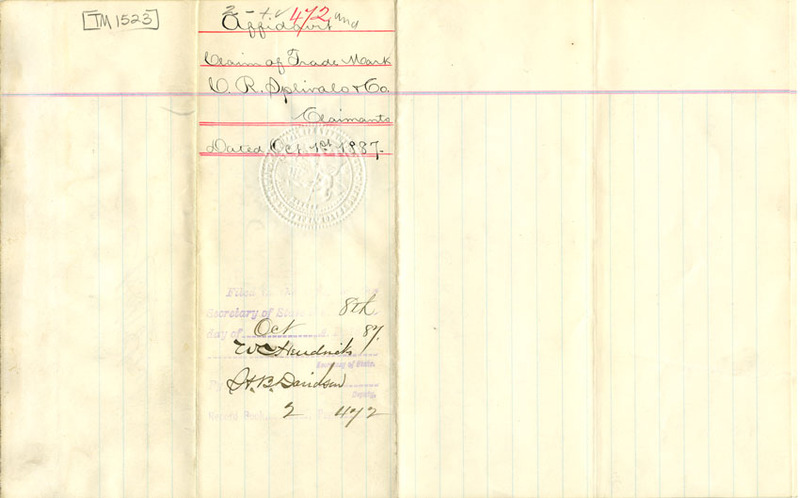 TM1523
472
Affidavit and
Claim of Trade Mark
C. R. Splivalo & Co.
Claimants
Dated, Oct. 1st 1887.
Filed
8th
Secretary of State
day of Oct 87.
W C Hendricks
Secretary of State.
By H. B. Davidson
Deputy.
Record Book 2 472